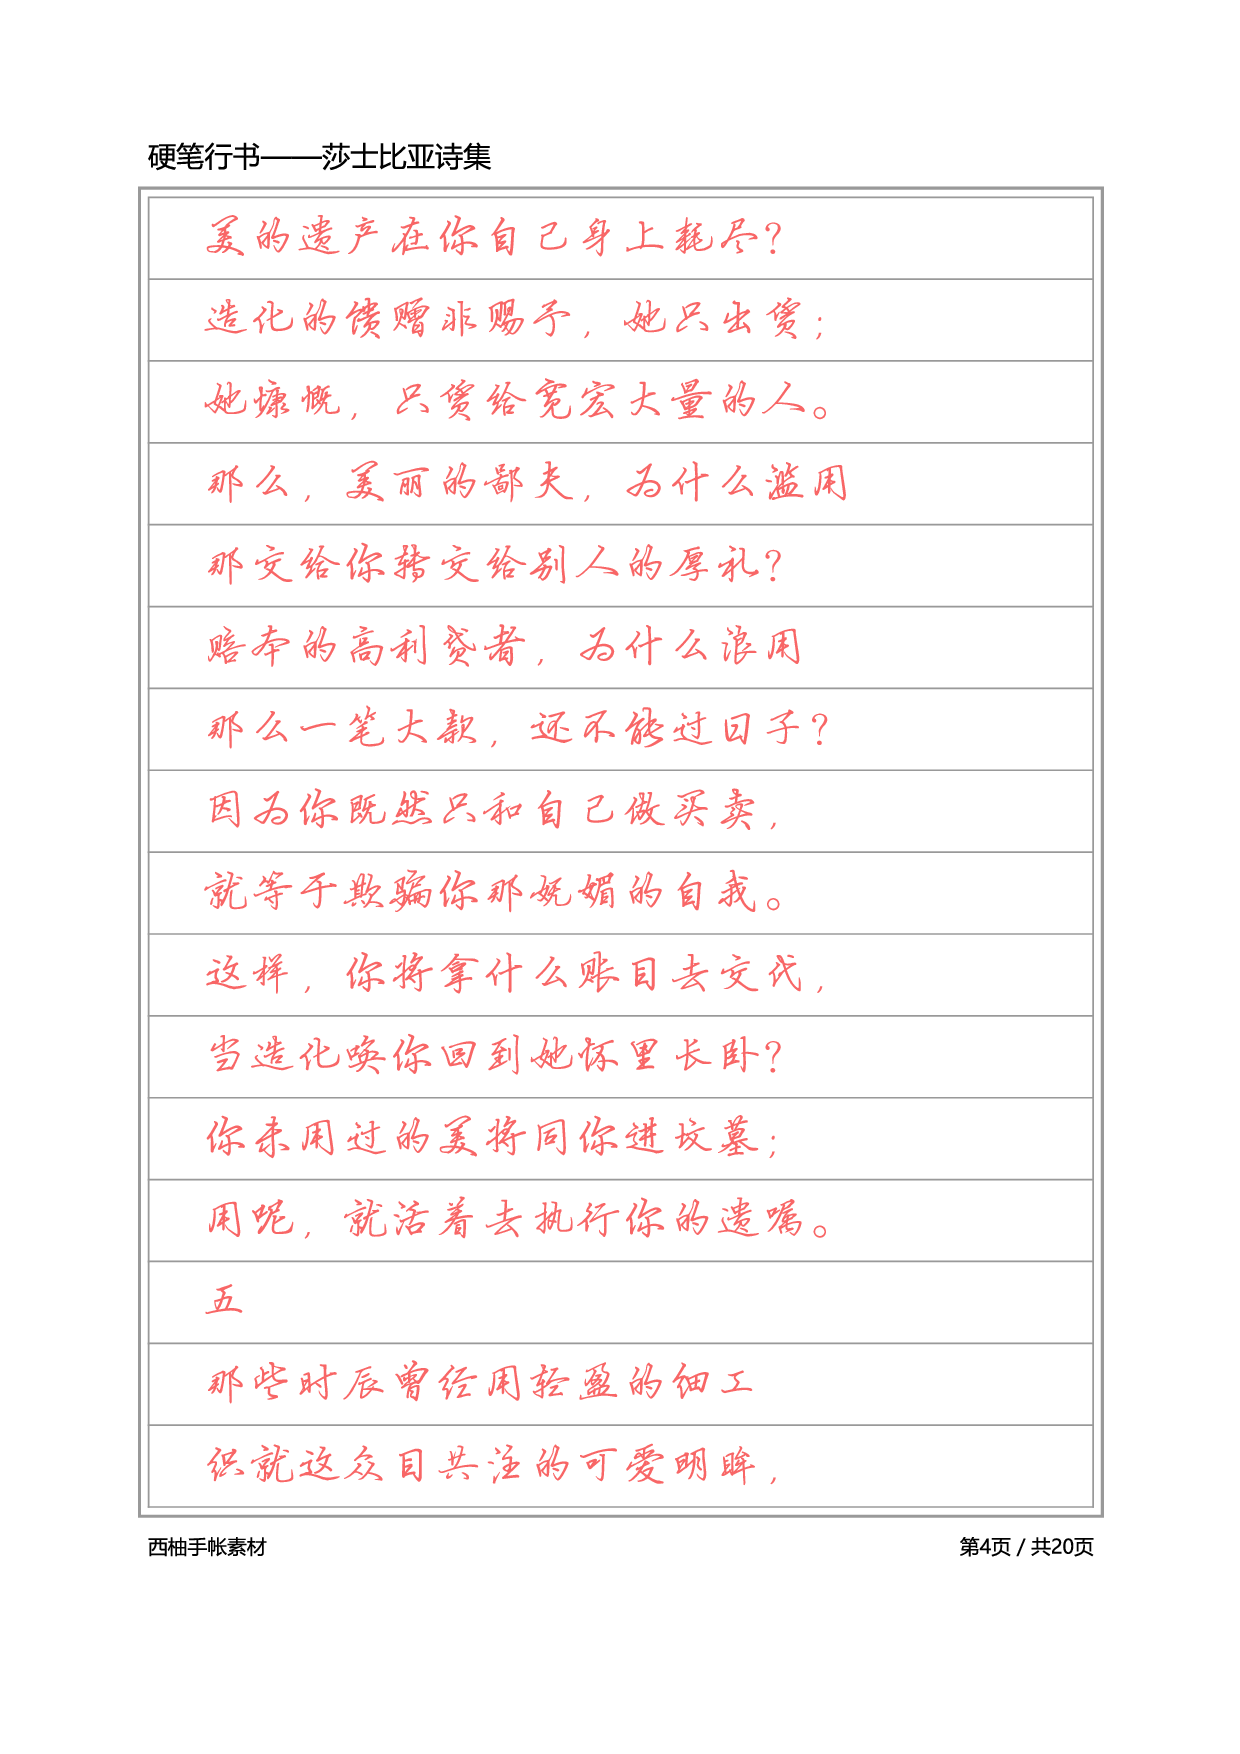 硬笔行书——莎士比亚诗集
美的遗产在你自己身上耗尽？
造化的馈赠非赐予，她只出赁；
她慷慨，只赁给宽宏大量的人。
那么，美丽的鄙夫，为什么滥用
那交给你转交给别人的厚礼？
赔本的高利贷者，为什么浪用
那么一笔大款，还不能过日子？
因为你既然只和自己做买卖，
就等于欺骗你那妩媚的自我。
这样，你将拿什么账目去交代，
当造化唤你回到她怀里长卧？
你未用过的美将同你进坟墓；
用呢，就活着去执行你的遗嘱。
五
那些时辰曾经用轻盈的细工
织就这众目共注的可爱明眸，
西柚手帐素材
第4页 / 共20页